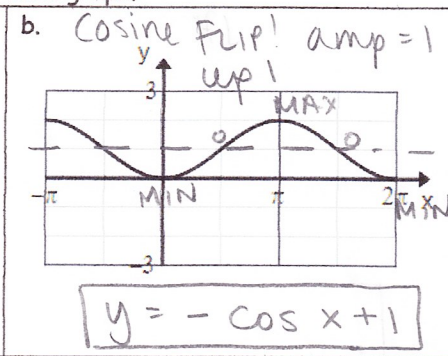 b. Cosine FLIP! amp = 1
y up 1
3 MAX
0 0
-π MIN π 2π x MIN
-3
y = - cos x + 1